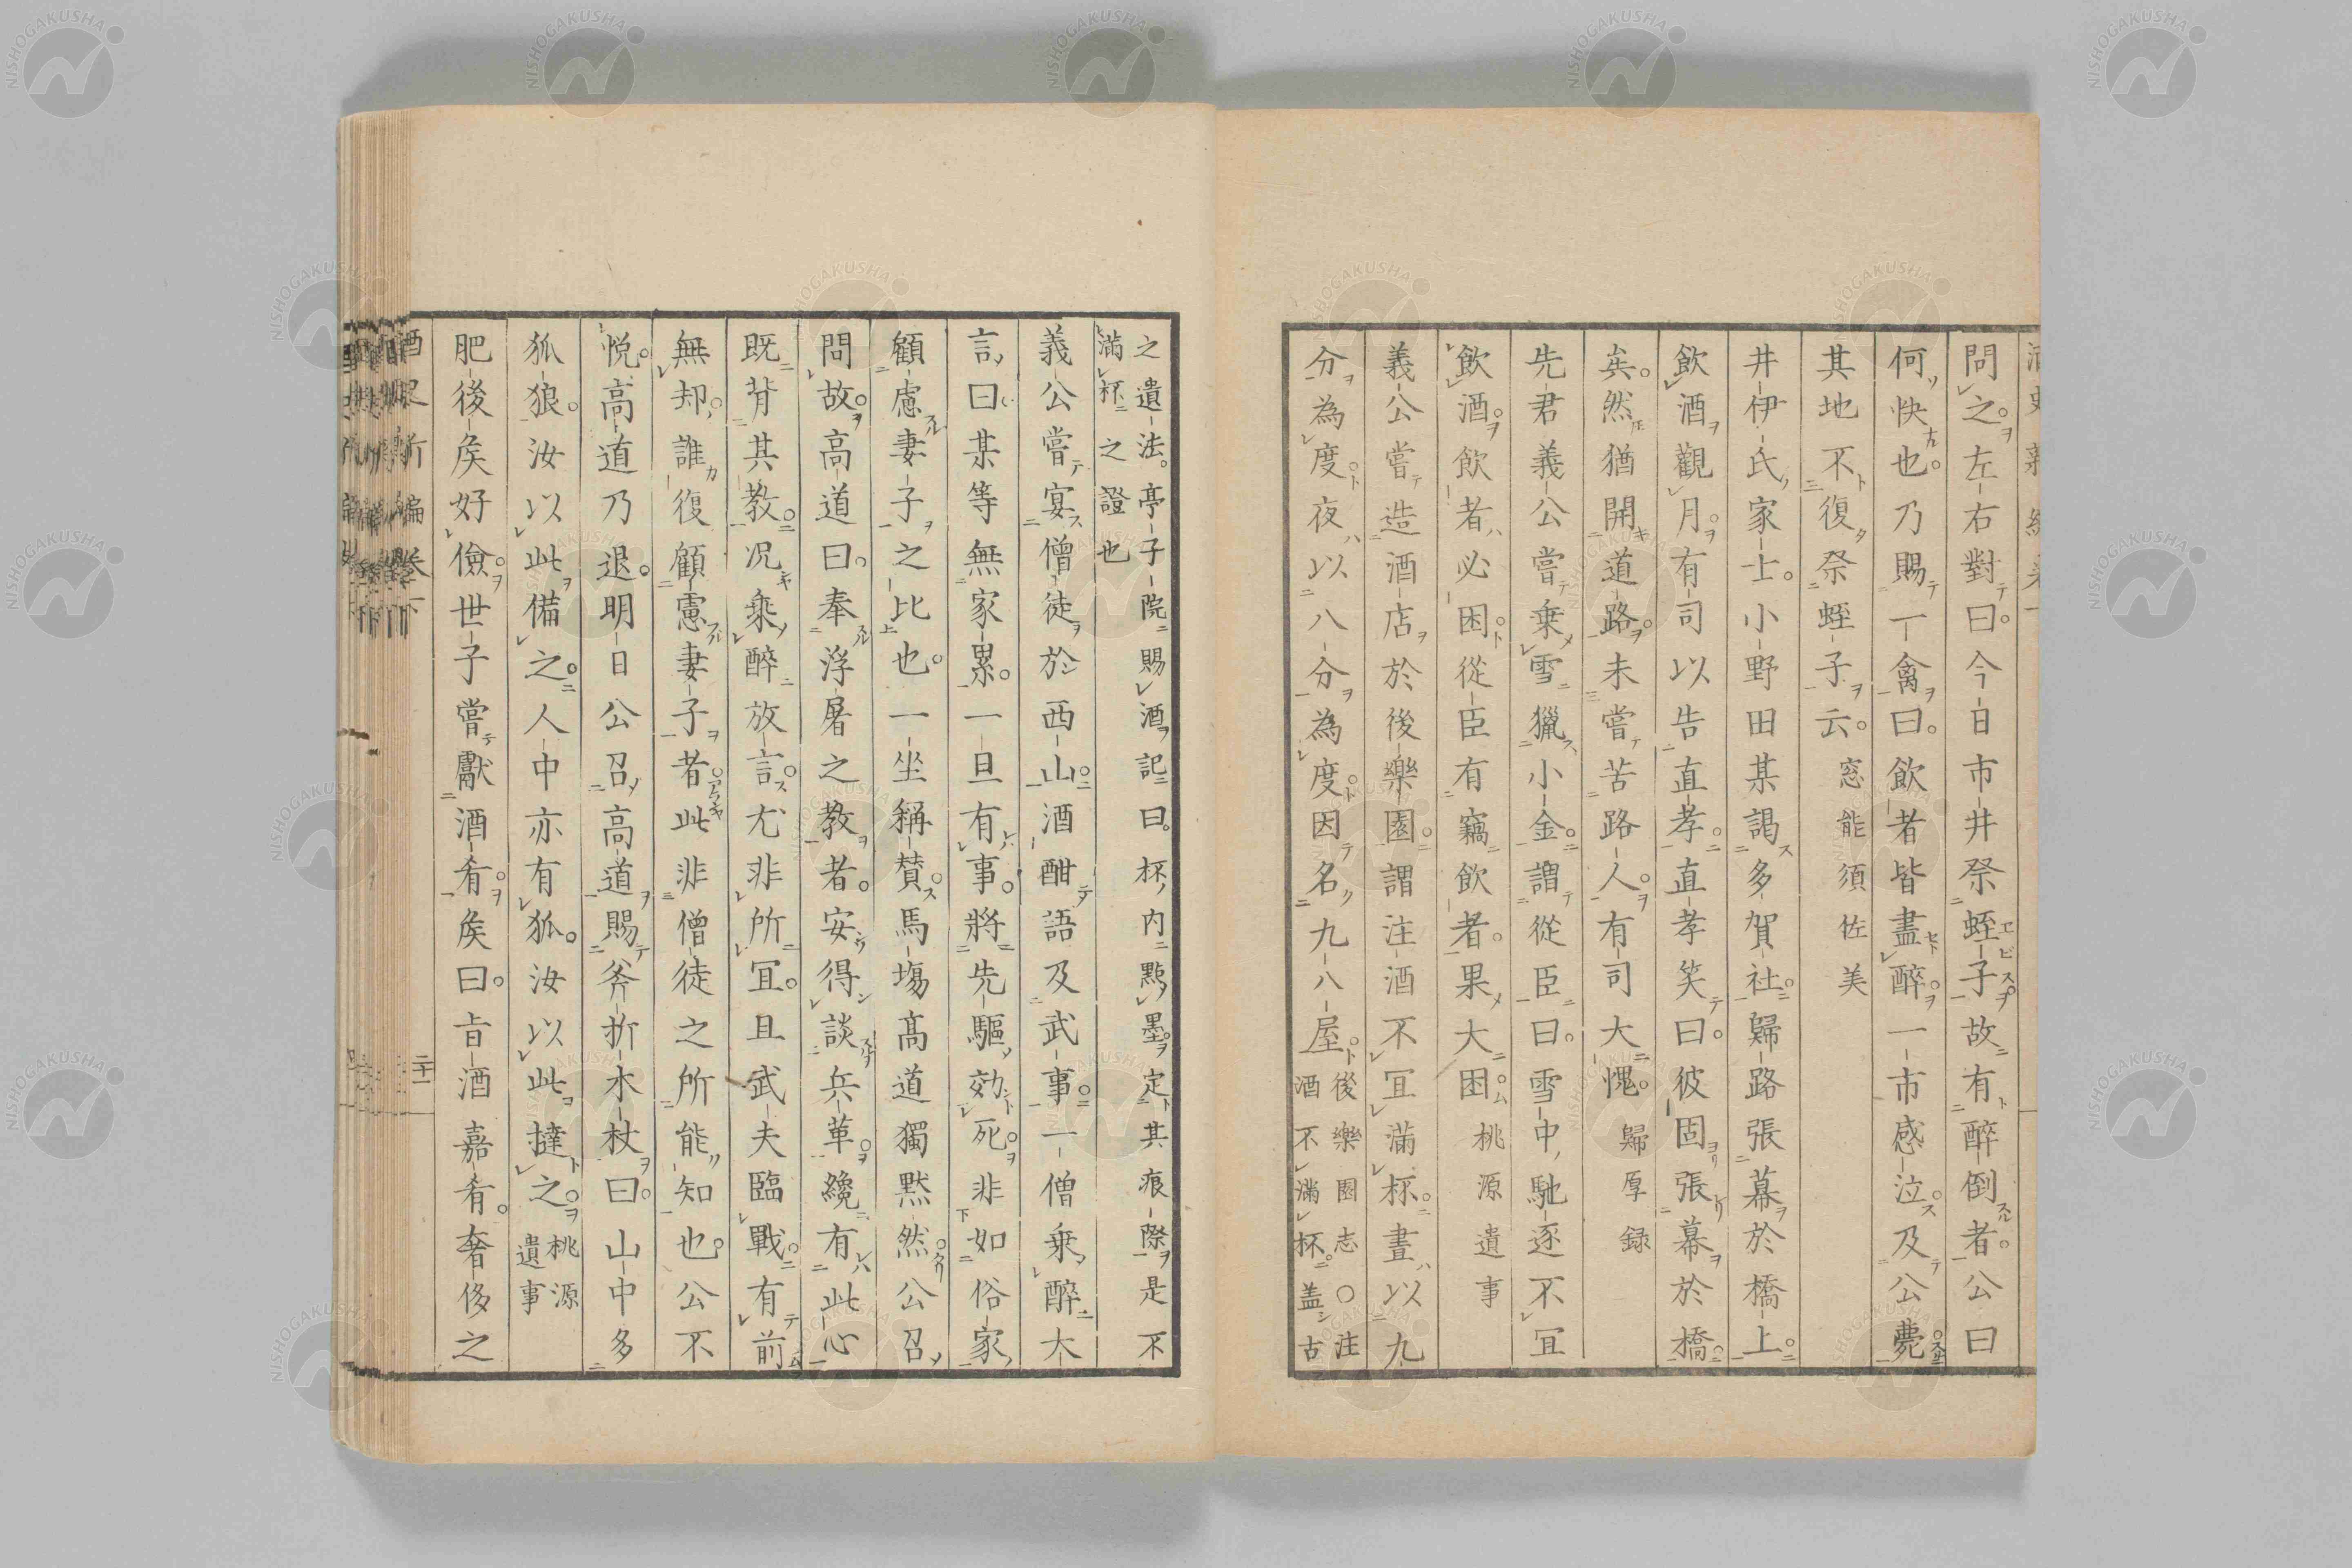 問之。左右對曰。今日市井祭蛭子。故有醉倒者。公曰
何快也。乃賜一禽。曰。飲者皆盡醉。一市感泣。及公薨
其地不復祭蛭子云。窓能須佐美
井伊氏家士。小野田某謁多賀社。歸路張幕於橋上。
飲酒觀月。有司以告直孝。直孝笑曰。彼固張幕於橋
矣。然猶開道路。未嘗苦路人。有司大愧。歸厚録
先君義公嘗乗雪獵小金。謂從臣曰。雪中馳逐不冝
飲酒。飲者必困。從臣有竊飲者。果大困。桃源遺事
義公嘗造酒店於後樂園。謂注酒不冝滿杯。晝以九
分為度。夜以八分為度。因名九八屋。後樂園志〇注酒不滿杯。盖古
之遺法。亭子院賜酒記曰。杯内點墨。定其痕際。是不
滿杯之證也
義公嘗宴僧徒於西山。酒酣語及武事。一僧乗醉大
言曰。某等無家累。一旦有事。將先驅効死。非如俗家
顧慮妻子之比也。一坐稱賛。馬塲高道獨黙然。公召
問故。高道曰。奉浮屠之教者。安得談兵革。纔有此心
既背其教。况乗醉放言。尤非所冝。且武夫臨戰。有前
無却。誰復顧慮妻子者。此非僧徒之所能知也。公不
悅。高道乃退。明日公召高道。賜斧折木杖曰。山中多
狐狼。汝以此備之。人中亦有狐。汝以此撻之。桃源遺事
肥後矦好儉。世子嘗獻酒肴。矦曰。旨酒嘉肴。奢侈之
二十一
NISHOGAKUSHA